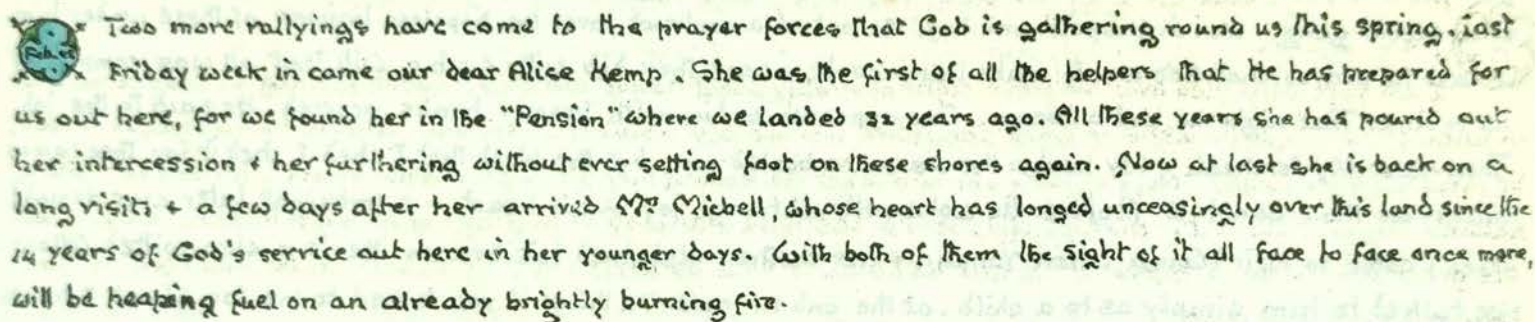 Two more rallyings have come to the prayer forces that God is gathering round us this spring. Last
Friday week in came our dear Alice Kemp. She was the first of all the helpers that He has prepared for
us out here, for we found her in the "Pension" where we landed 32 years ago. All these years she has poured out
her intercession & her furthering without ever setting foot on these shores again. Now at last she is back on a
long visit, & a few days after her arrived Mrs Michell, whose heart has longed unceasingly over this land since the
14 years of God's service out here in her younger days. With both of them the sight of it all face to face once more,
will be heaping fuel on an already brightly burning fire.